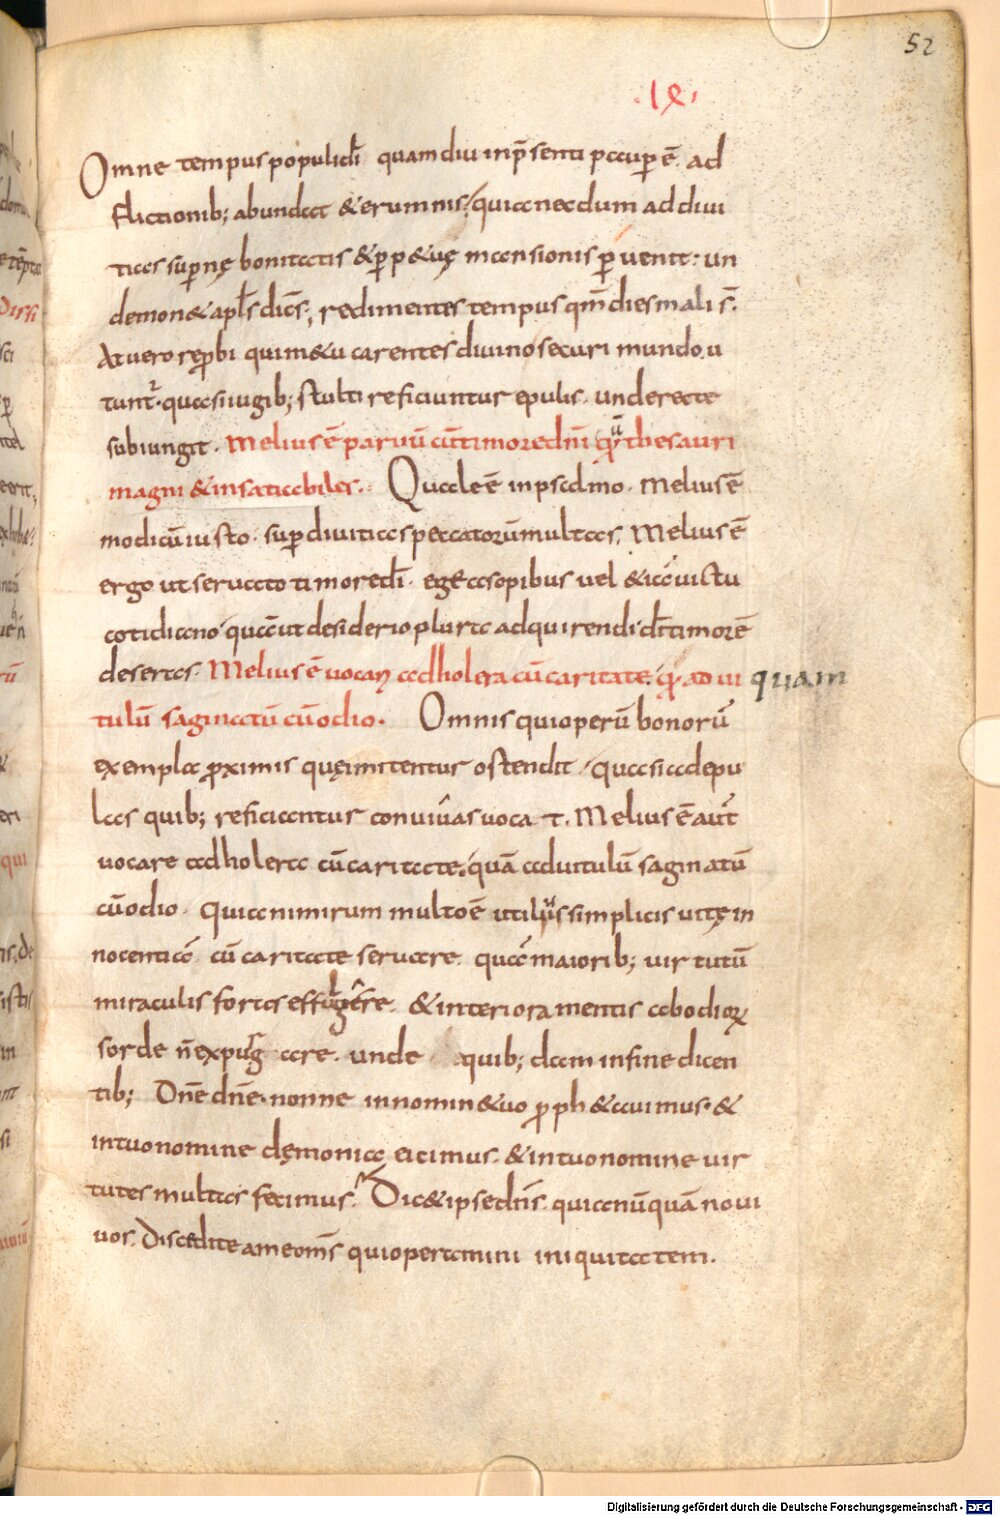 52
.IX.
Omne tempus populi dī quamdiu in p̄senti pauper ē. ad
flictionib; abundat & erumnis; quia necdum ad diui
tias supernę bonitatis & perp&uę mansionis peruenit: un
demon& apl̄s dic̄s; redimentes tempus qm̄ dies mali s̄.
At uero reprobi qui m&u carentes diuino securi mundo u
tunt̄. quasi iugib; stulti reficiuntur epulis. unde recte
subiungit. Melius ē paruū cū timore dn̄i quā thesauri
magni & insatiabiles. Quale ē in psalmo. Melius ē
modicū iusto. super diuitias peccatorū multas. Melius ē
ergo ut seruato timore dī. egeas opibus uel &iā uictu
cotidiano quā ut desiderio plura adquirendi dī timorē
deseras. Melius ē uocari ad holera cū caritate. q̄ ad ui quam
tulū saginatū cū odio. Omnis qui operū bonorū
exempla proximis quę imitentur ostendit. quasi ad epu
las quib; reficiantur conuiuas uocat. Melius ē aūt
uocare ad holera cū caritate. quā ad uitulū saginatū
cū odio. Quia nimirum multo ē utilius simplicis uitę in
nocentiā cū caritate seruare. quā maiorib; uirtutū
miraculis foras effulgere. & interiora mentis ab odiorū
sorde n̄ expurgare. unde quib;dam in fine dicen
tib; Dn̄e dn̄e. nonne in nomin& uo proph&auimus. &
in tuo nomine dęmonia eicimus. & in tuo nomine uir
tutes multas fecimus. Dic& ipse dn̄s. quia nūquā noui
uos. Discedite a me om̄s qui operamini iniquitatem.
Digitalisierung gefördert durch die Deutsche Forschungsgemeinschaft - DFG